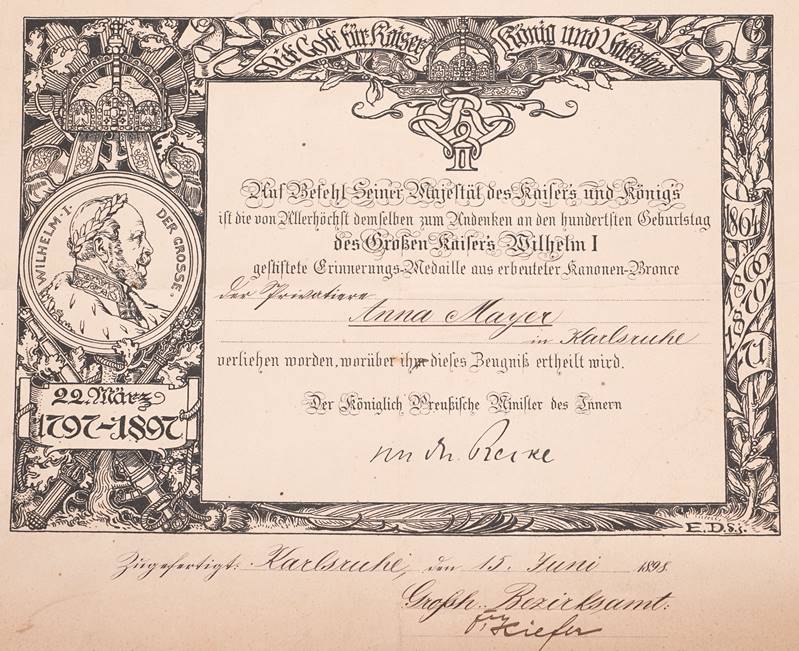 Mit Gott für Kaiser König und Vaterland
WILHELM · I · DER GROSSE ·
22. März
1797–1897
1864
1866
1870
71
W R
II
Auf Befehl Seiner Majestät des Kaisers und Königs
ist die von Allerhöchst demselben zum Andenken an den hundertsten Geburtstag
des Großen Kaisers Wilhelm I
gestiftete Erinnerungs-Medaille aus erbeuteter Kanonen-Bronce
der Privatiere
Anna Mayer
in Karlsruhe
verliehen worden, worüber ihr dieses Zeugniß ertheilt wird.
Der Königlich Preußische Minister des Innern
von der Recke
E.D.
Zugefertigt: Karlsruhe, den 15. Juni 1898
Großh. Bezirksamt:
Kiefer